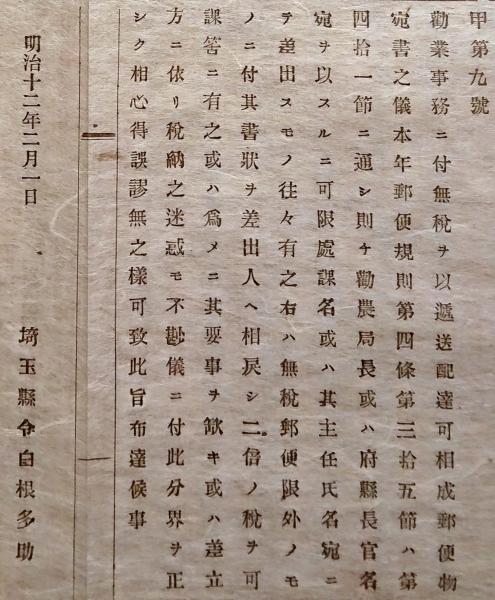 甲第九號
勸業事務ニ付無税ヲ以遞送配達可相成郵便物
宛書之儀本年郵便規則第四條第三拾五節ハ第
四拾一節ニ通シ則チ勸農局長或ハ府縣長官名
宛ヲ以スルニ可限處課名或ハ其主任氏名宛ニ
テ差出スモノ往々有之右ハ無税郵便限外ノモ
ノニ付其書狀ヲ差出人ヘ相戾シ二倍ノ税ヲ可
課筈ニ有之或ハ爲メニ其要事ヲ欹キ或ハ差立
方ニ依リ税納之迷惑モ不尠儀ニ付此分界ヲ正
シク相心得誤謬無之樣可致此旨布達候事
明治十二年二月一日
埼玉縣令白根多助